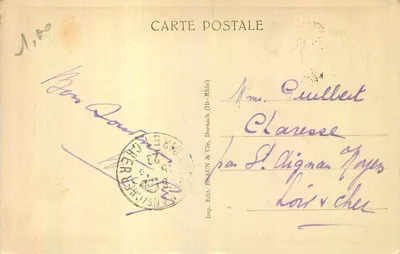 CARTE POSTALE
1,00
Bon Souvenir
Imp. Edit. BRAUN & Cie, Dornach (Ht-Rhin)
CHER
Mme. Guilbert
Charesse
par St. Aignan Noyers
Loir & Cher